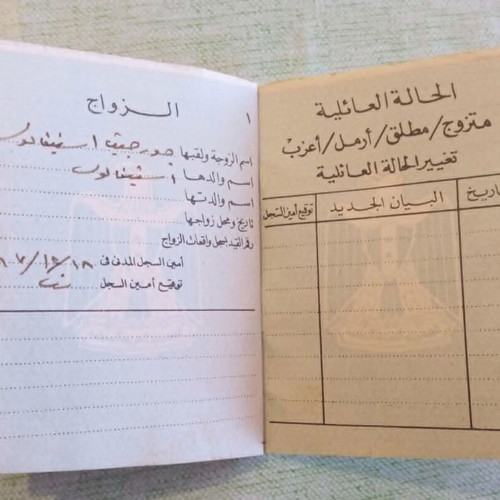 الحالة العائلية
متزوج/مطلق/أرمل/أعزب
تغيير الحالة العائلية
تاريخ
البيان الجديد
توقيع أمين السجل
١
الزواج
اسم الزوجة ولقبها جورجيت استيفانوس
اسم والدها استيفانوس
اسم والدتها
تاريخ ومحل زواجها
رقم القيد بسجل واقعات الزواج
أمين السجل المدنى فى ١٨/١٢/
توقيع أمين السجل